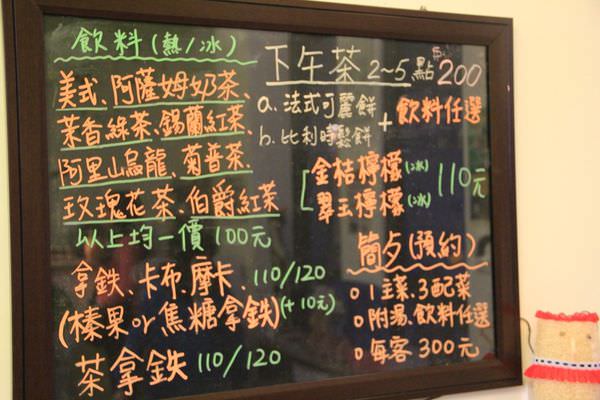 飲料(熱/冰)
美式、阿薩姆奶茶、
茉香綠茶、錫蘭紅茶、
阿里山烏龍、菊普茶、
玫瑰花茶、伯爵紅茶
以上均一價100元
拿鉄、卡布、摩卡、110/120
(榛果or焦糖拿鉄)(+10元)
茶拿鉄 110/120
下午茶 2~5點 200
a. 法式可麗餅
b. 比利時鬆餅
+ 飲料任選
金桔檸檬(冰)
翠玉檸檬(冰)
110元
簡夕(預約)
o 1主菜、3配菜
o 附湯、飲料任選
o 每客 300元